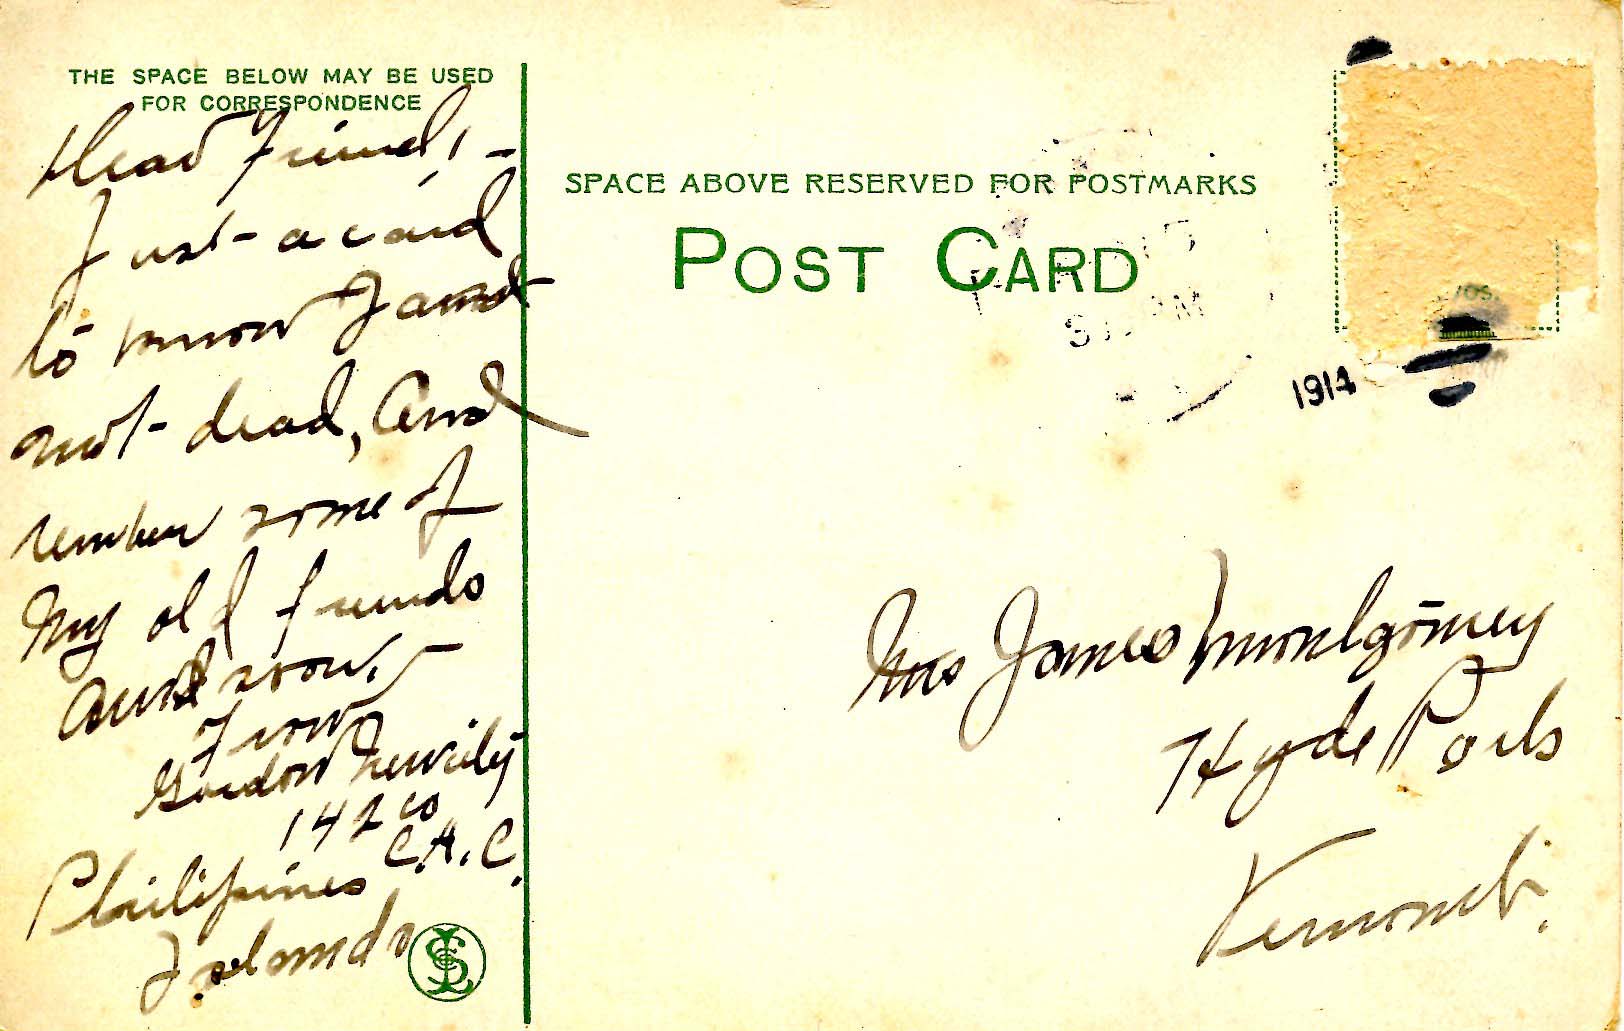 THE SPACE BELOW MAY BE USED
FOR CORRESPONDENCE
Dear Friend, -
Just - a card
to know I am
not - dead, and
rember some of
My old friends
and now.
From
Gordon
142 co
C.A.C.
Philipines
Islands
SPACE ABOVE RESERVED FOR POSTMARKS
POST CARD
PM
1914
Mrs James Montgomery
Hyde Park
Vermont.